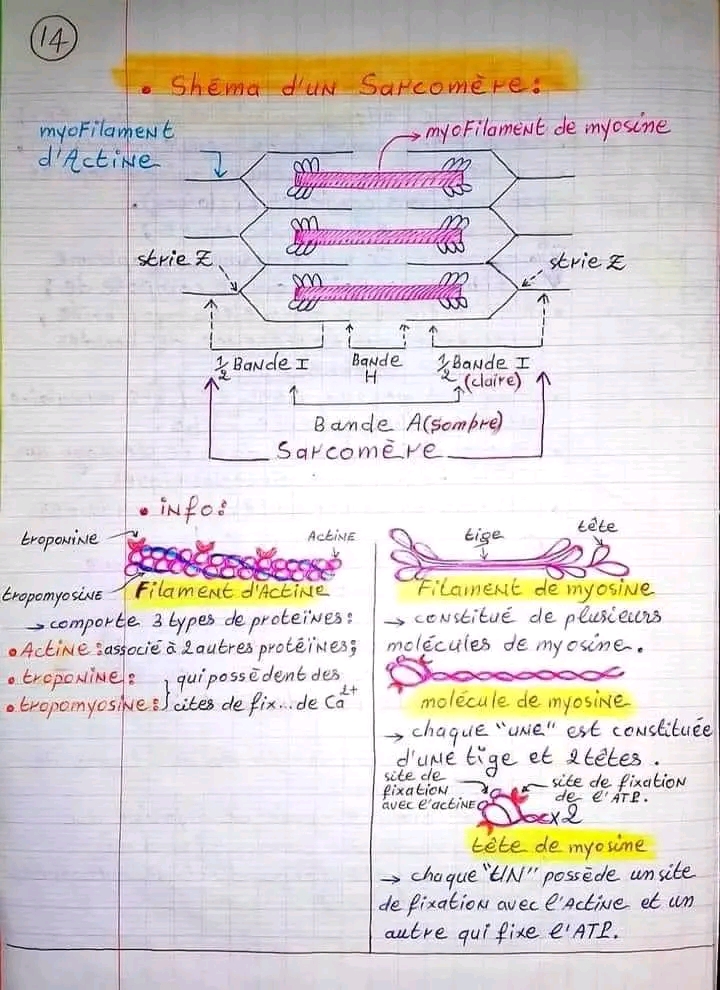 14
• Shéma d'un Sarcomère:
myofilament
d'Actine
myofilament de myosine
strie Z
strie Z
1/2 Bande I
Bande
H
1/2 Bande I
(claire)
Bande A(sombre)
Sarcomère
• info:
troponine
Actine
tropomyosine
Filament d'Actine
→ comporte 3 types de proteines:
• Actine: associé à 2 autres protéines;
• troponine:
• tropomyosine:
} qui possèdent des
cites de fix... de Ca2+
tige
tête
Filament de myosine
→ constitué de plusieurs
molécules de myosine.
molécule de myosine
→ chaque "une" est constituée
d'une tige et 2 têtes.
site de
fixation
avec l'actine
site de fixation
de l'ATP.
x2
tête de myosine
→ chaque "UN" possède un site
de fixation avec l'Actine et un
autre qui fixe l'ATP.